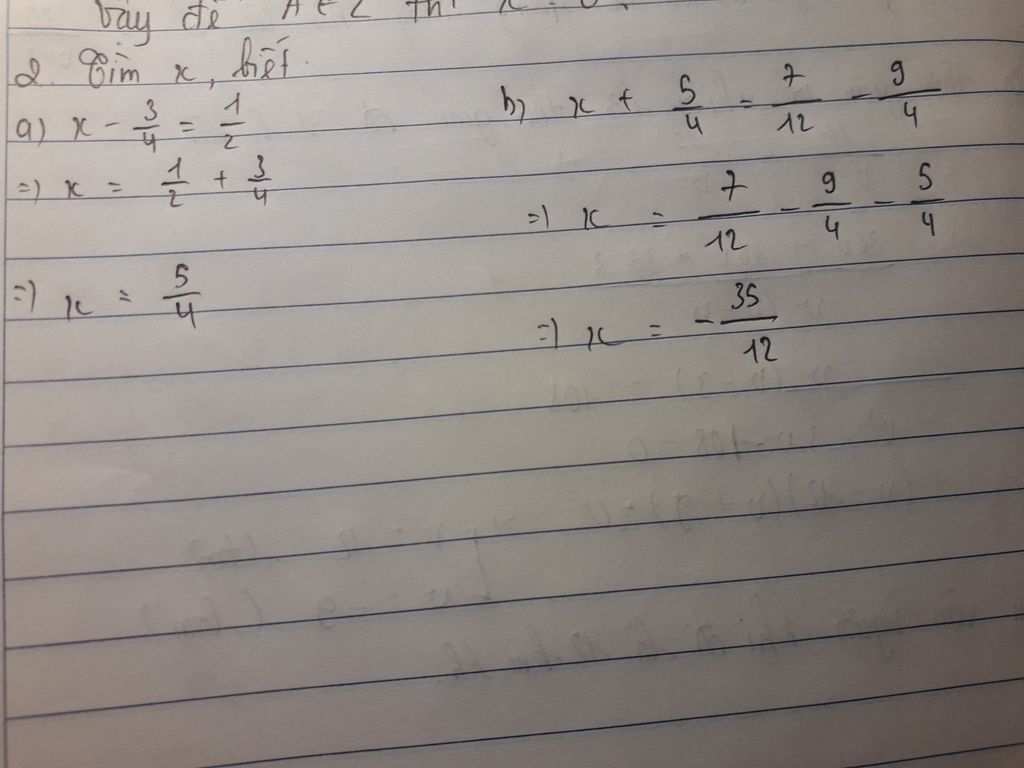 vậy để A ∈ Z thì x
2. Tìm x, biết.
a) x - 3/4 = 1/2
=) x = 1/2 + 3/4
=) x = 5/4
b) x + 5/4 = 7/12 - 9/4
=) x = 7/12 - 9/4 - 5/4
=) x = - 35/12